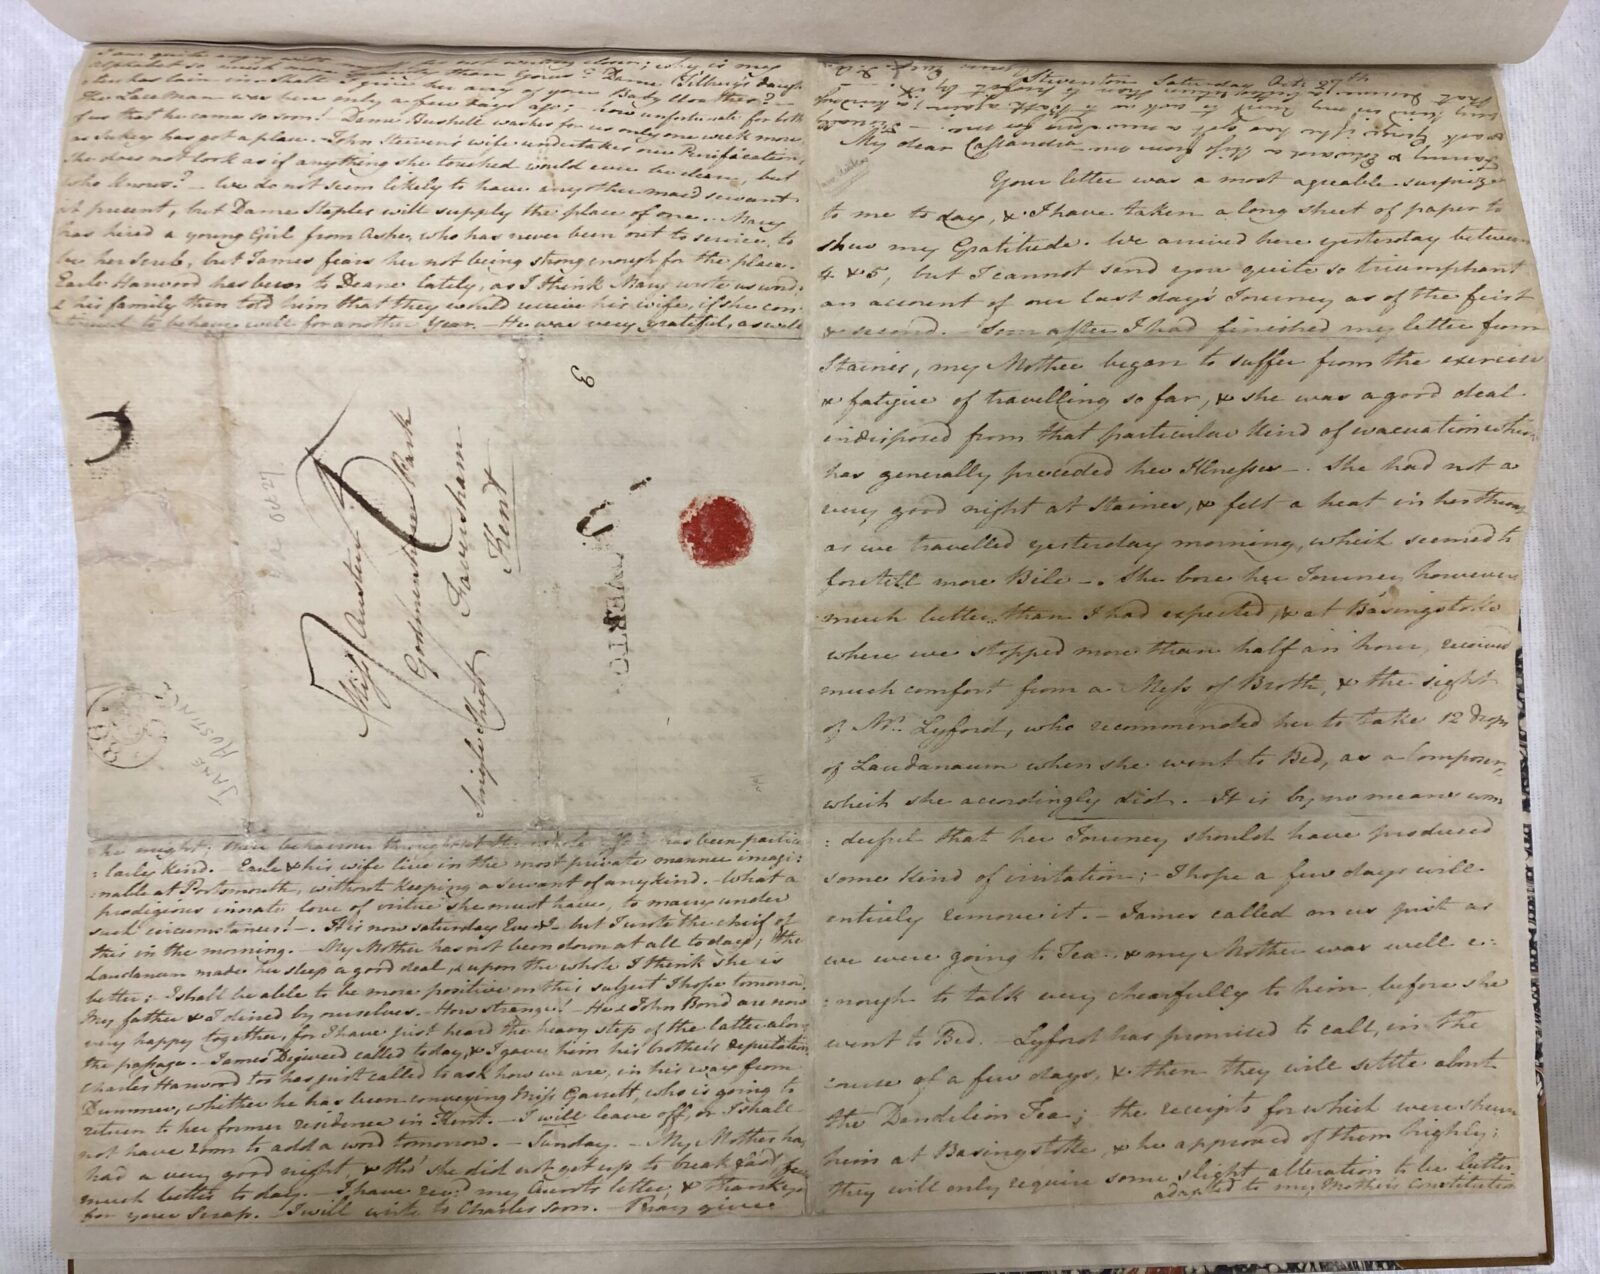 Steventon Saturday Octr. 27th
My dear Cassandra
Your letter was a most agreable surprize
to me to day, & I have taken a long sheet of paper to
shew my Gratitude. We arrived here yesterday between
4 & 5, but I cannot send you quite so triumphant
an account of our last day's Journey as of the first
& second. Soon after I had finished my letter from
Staines, my Mother began to suffer from the exercise
& fatigue of travelling so far, & she was a good deal
indisposed from that particular kind of evacuation which
has generally preceded her Illnesses—. She had not a
very good night at Staines, & felt a heat in her throat
as we travelled yesterday morning, which seemed to
foretell more Bile—. She bore her Journey however
much better than I had expected, & at Basingstoke
where we stopped more than half an hour, received
much comfort from a Mess of Broth, & the sight
of Mr. Lyford, who recommended her to take 12 drops
of Laudanum when she went to Bed, as a Composer,
which she accordingly did.—It is by no means won
:derful that her Journey should have produced
some kind of irritation;—I hope a few days will
entirely remove it.—James called on us just as
we were going to Tea, & my Mother was well e:
:nough to talk very chearfully to him before she
went to Bed.—Lyford has promised to call, in the
course of a few days, & then they will settle about
the Dandelion Tea;—the receipts for which were shewn
him at Basingstoke, & he approved of them highly;
they will only require some slight alteration to be better
adapted to my Mother's Constitution
I am quite angry with myself for not writing closer; why is my
alphabet so much more sprawly than Yours? Dame Tilbury's daugh-
ter has lain in—Shall I give her any of your Baby Cloathes?—
The Laceman was here only a few days ago; how unfortunate for both
of us that he came so soon! Dame Bushell washes for us only one week more,
as Sukey has got a place.—John Steevens' wife undertakes our Purification;
She does not look as if anything she touched would ever be clean, but
who knows?—We do not seem likely to have any other maidservant
at present, but Dame Staples will supply the place of one.—Mary
has hired a young Girl from Ashe, who has never been out to service, to
be her Scrub, but James fears her not being strong enough for the place.
Earle Harwood has been to Deane lately, as I think Mary wrote us word,
& his family then told him that they would receive his wife, if she con:
:tinued to behave well for another Year.—He was very grateful, as well
Miss Austen
Godmersham Park
Faversham
Kent
Single Sheet
3
Oct 27
JANE
AUSTIN
98
he might; their behaviour throughout the whole affair has been particu
:larly kind. Earle & his wife live in the most private manner imagi:
:nable at Portsmouth, without keeping a servant of any kind.—What a
prodigious innate love of virtue she must have, to marry under
such circumstances!—. It is now Saturday Eveng. but I wrote the chief of
this in the morning.—My Mother has not been down at all to day; the
Laudanum made her sleep a good deal, & upon the whole I think she is
better;—I shall be able to be more positive on this subject I hope tomorrow.
My father & I dined by ourselves—How strange!—He & John Bond are now
very happy together, for I have just heard the heavy step of the latter along
the passage.—James Digweed called to day, & I gave him his brother's deputation.
Charles Harwood too has just called to ask how we are, in his way from
Dummer, whither he has been conveying Miss Garrett, who is going to
return to her former residence in Kent.—I will leave off, or I shall
not have room to add a word tomorrow.—Sunday.—My Mother has
had a very good night, & tho' she did not get up to breakfast, feels
much better to day.—I have recd. my Aunt's letter, & thank you
for your Scrap.—I will write to Charles soon.—Pray give
Fanny & Edward a Kiss from me—&
ask George if he has got a new song for me.—